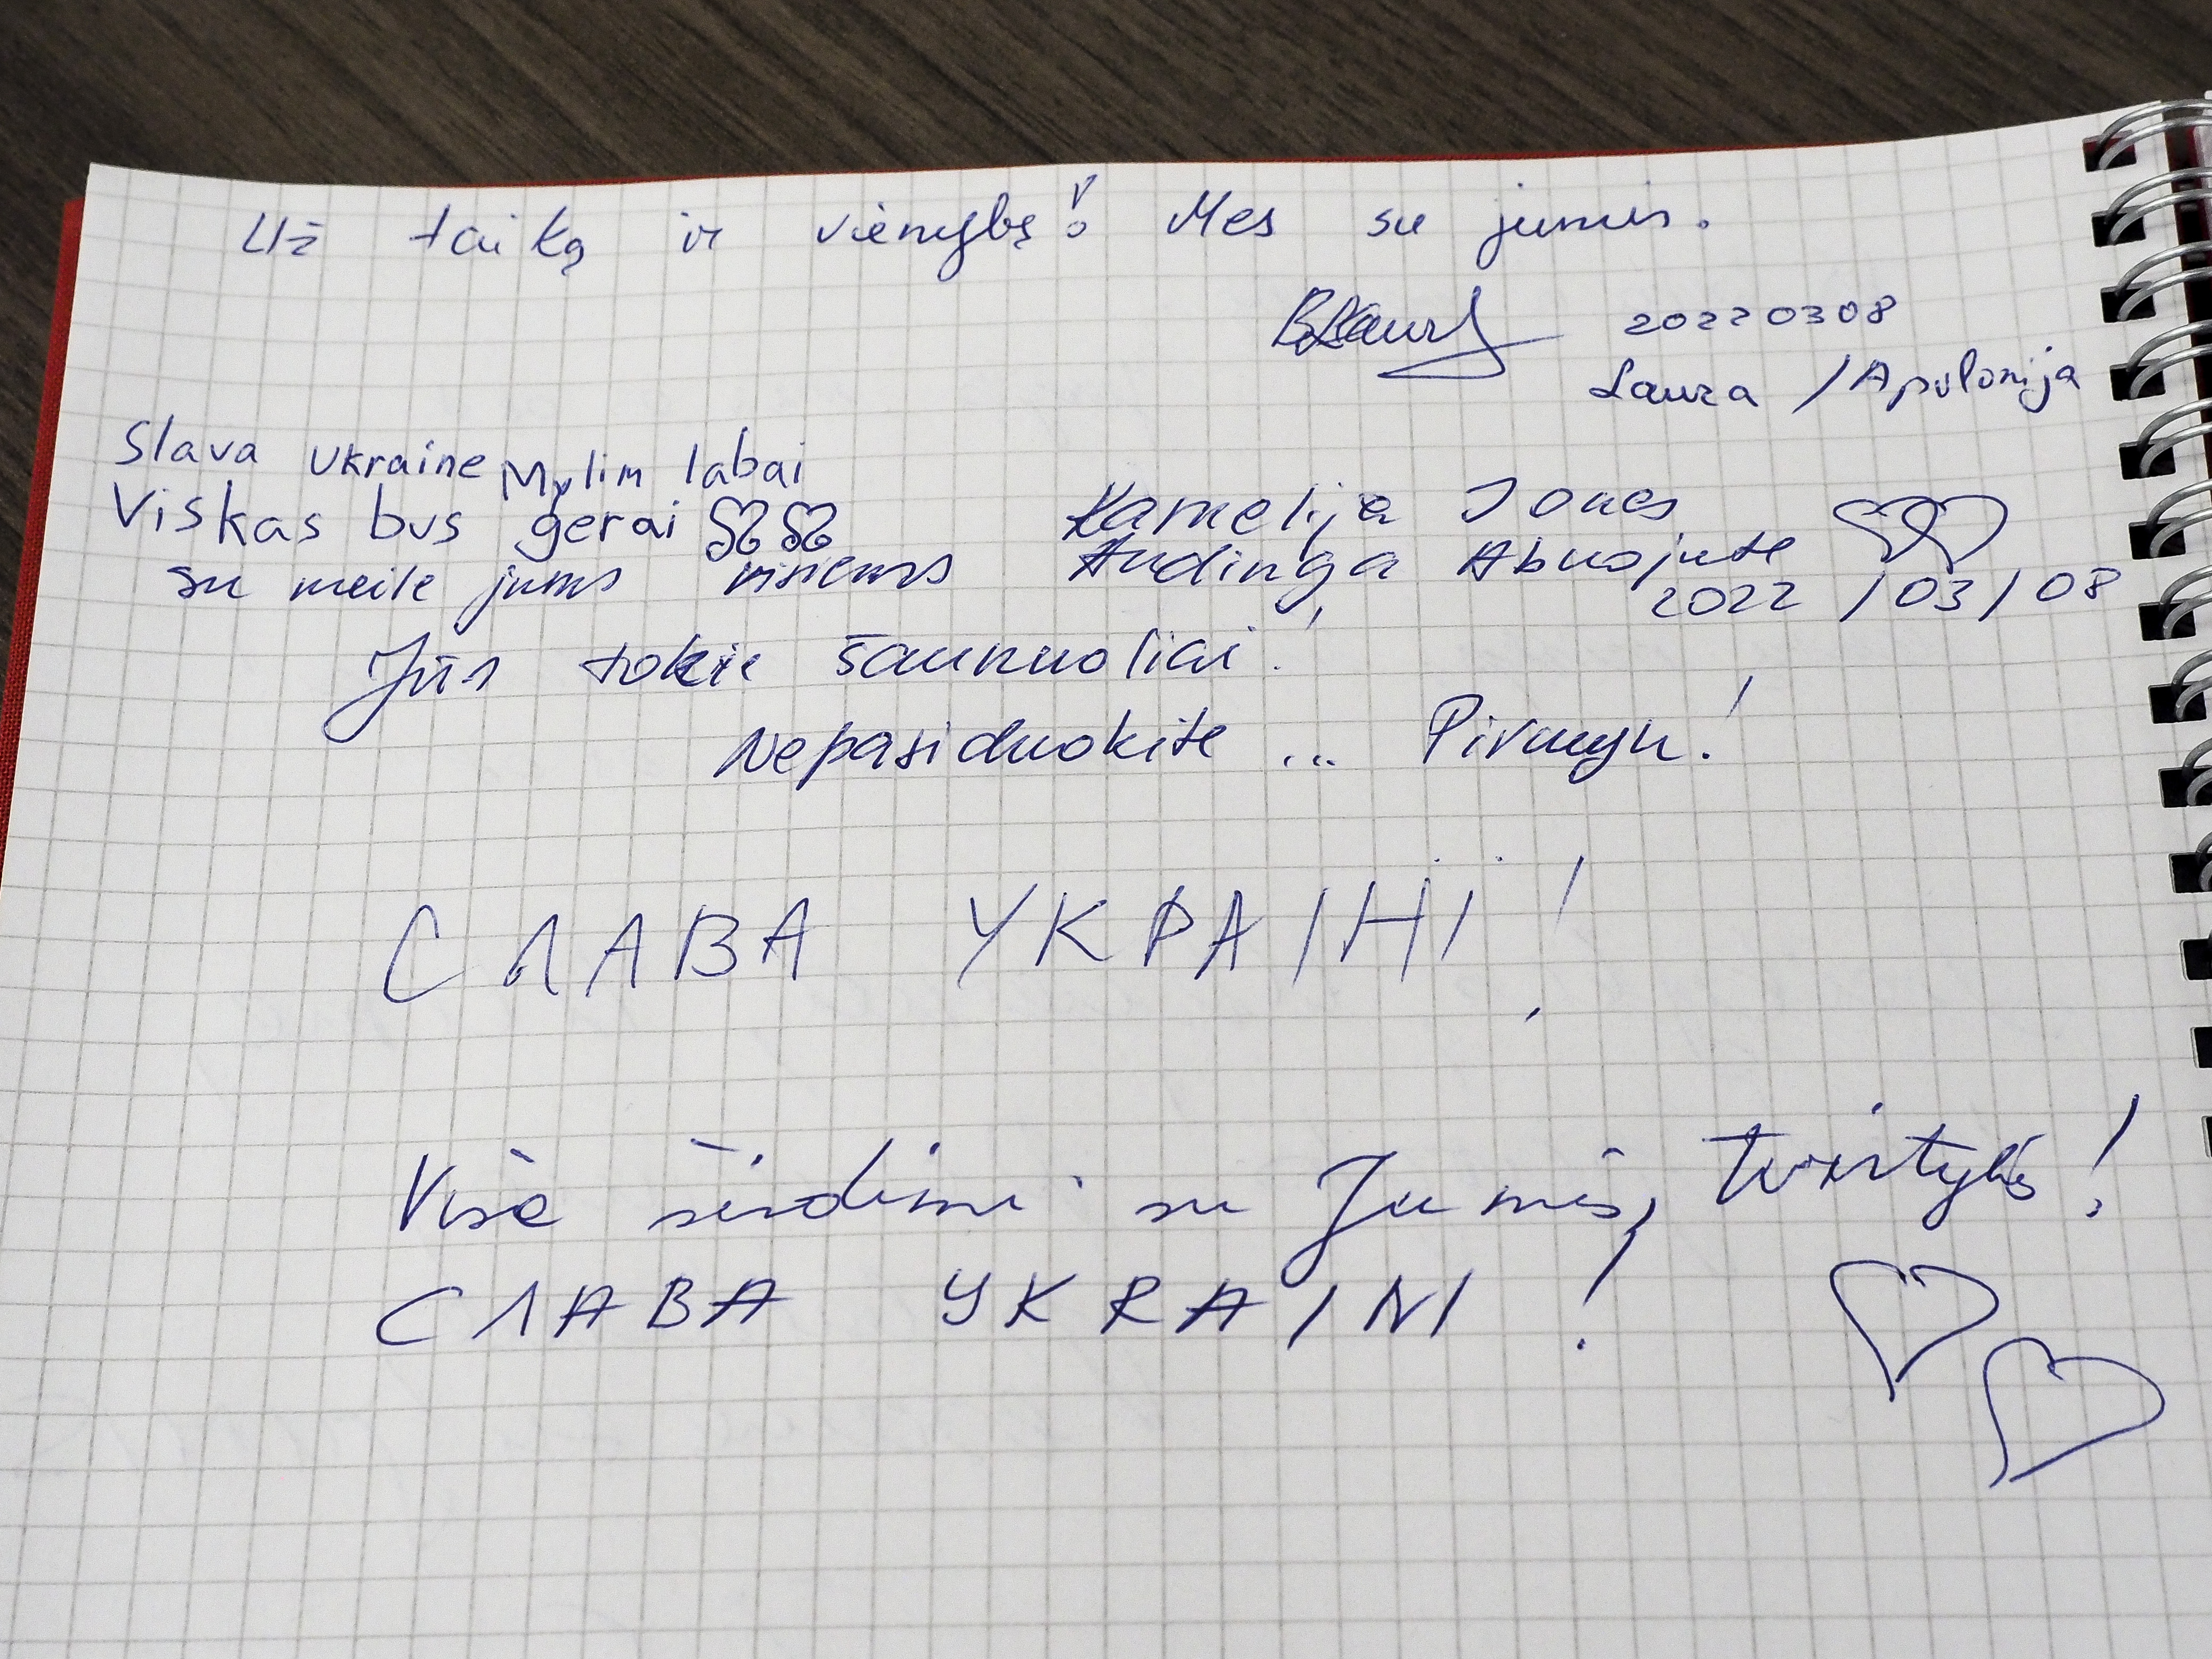 Už taiką ir vienybę! Mes su jumis.
20220308
Laura / Apolonija
Slava Ukraine Mylim labai
Viskas bus gerai
su meile jums visiems
Kamelija Jones
Audinga Abuojute
2022/03/08
Jūs tokie šaunuoliai!
Nepasiduokite ... Pirmyn!
СЛАВА УКРАІНІ!
Visa širdimi su Jumis, tvirtybės!
СЛАВА УКRAINI!